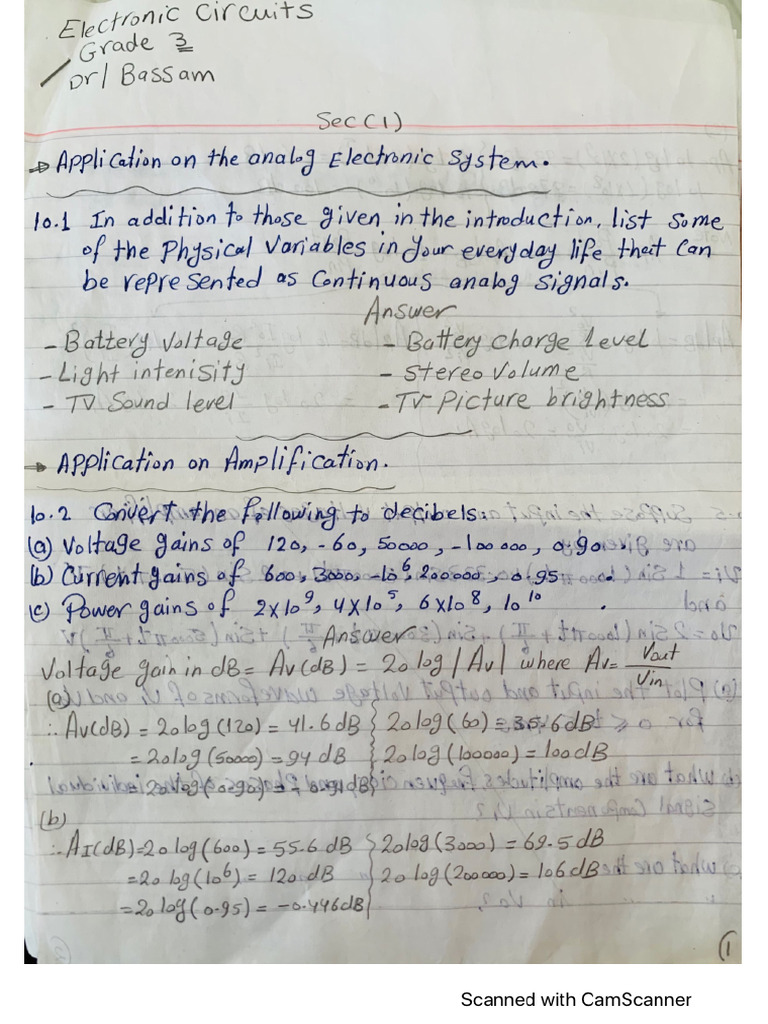 Electronic Circuits
Grade 3
Dr/ Bassam
Sec (1)
Application on the analog Electronic System.
10.1 In addition to those given in the introduction, list some
of the Physical Variables in your everyday life that can
be represented as Continuous analog signals.
Answer
- Battery Voltage - Battery charge level
- Light intenisity - Stereo Volume
- TV Sound level - TV Picture brightness
Application on Amplification.
10.2 Convert the following to decibels:
(a) Voltage gains of 120, -60, 50000, -100 000, 0.90.
(b) Current gains of 600, 3000, -10^6, 200000, 0.95
(c) Power gains of 2x10^9, 4x10^5, 6x10^8, 10^10.
Answer
Voltage gain in dB = Av(dB) = 20 log |Av| where Av = Vout/Vin
(a)
∴ Av(dB) = 20 log (120) = 41.6 dB } 20 log (60) = 35.6 dB
= 20 log (50000) = 94 dB } 20 log (100000) = 100 dB
= 20 log (0.90) = -0.91 dB
(b)
∴ AI(dB) = 20 log (600) = 55.6 dB } 20 log (3000) = 69.5 dB
= 20 log (10^6) = 120 dB } 20 log (200000) = 106 dB
= 20 log (0.95) = -0.446 dB
1
Scanned with CamScanner